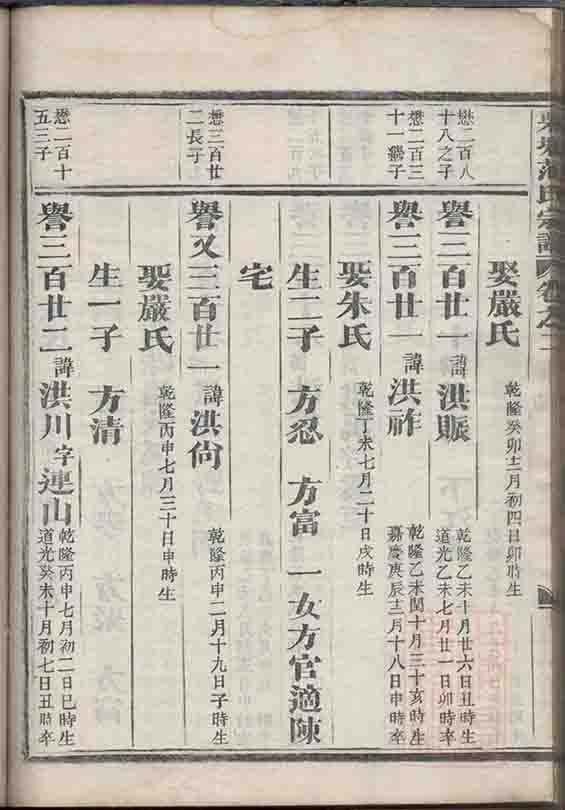 范氏宗譜 卷之二
娶嚴氏 乾隆癸卯十二月初四日卯時生
懋二百八
十八之子
譽三百廿一 諱洪賑 乾隆乙未十月廿六日丑時生
道光乙未七月廿一日卯時卒
懋二百三
十一繼子
譽三百廿一 諱洪祚 乾隆乙未閏十月三十亥時生
嘉慶庚辰十二月十八日申時卒
娶朱氏 乾隆丁未七月二十日戌時生
生二子 方忍 方富 一女方官適陳
宅
懋三百廿
二長子
譽又三百廿一 諱洪尙 乾隆丙申二月十九日子時生
娶嚴氏 乾隆丙申七月三十日申時生
生一子 方清
懋二百十
五三子
譽三百廿二 諱洪川字連山 乾隆丙申七月初二日巳時生
道光癸未十月初七日丑時卒